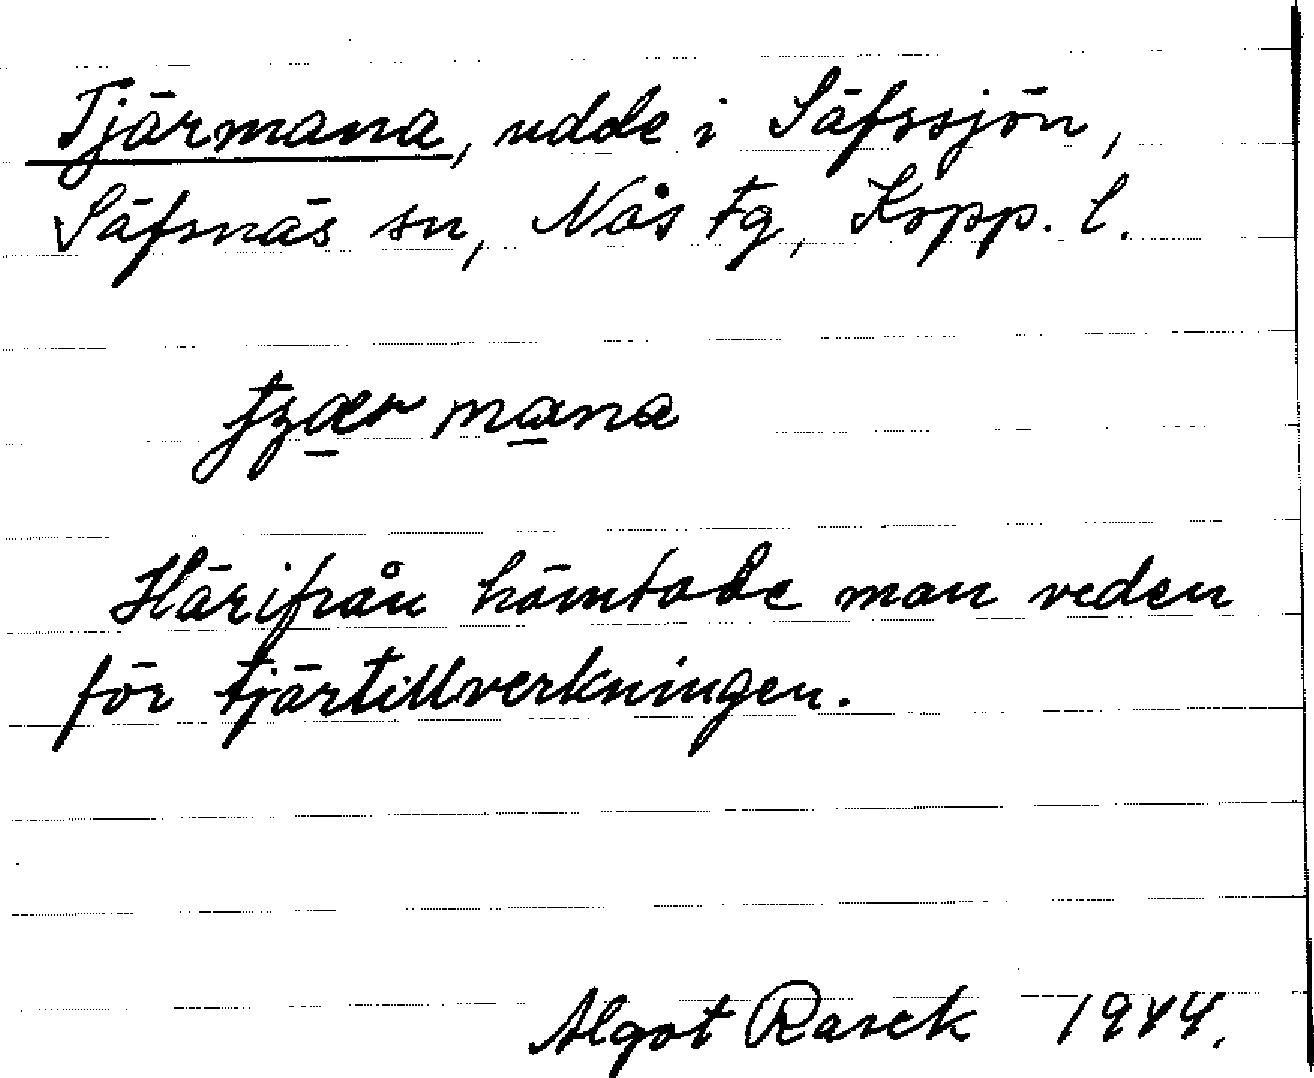 Tjärmana, udde i Säfssjön,
Säfsnäs sn, Nås tg, Kopp. l.
tʒær mana
Härifrån hämtade man veden
för tjärtillverkningen.
Algot Rasck 1944.